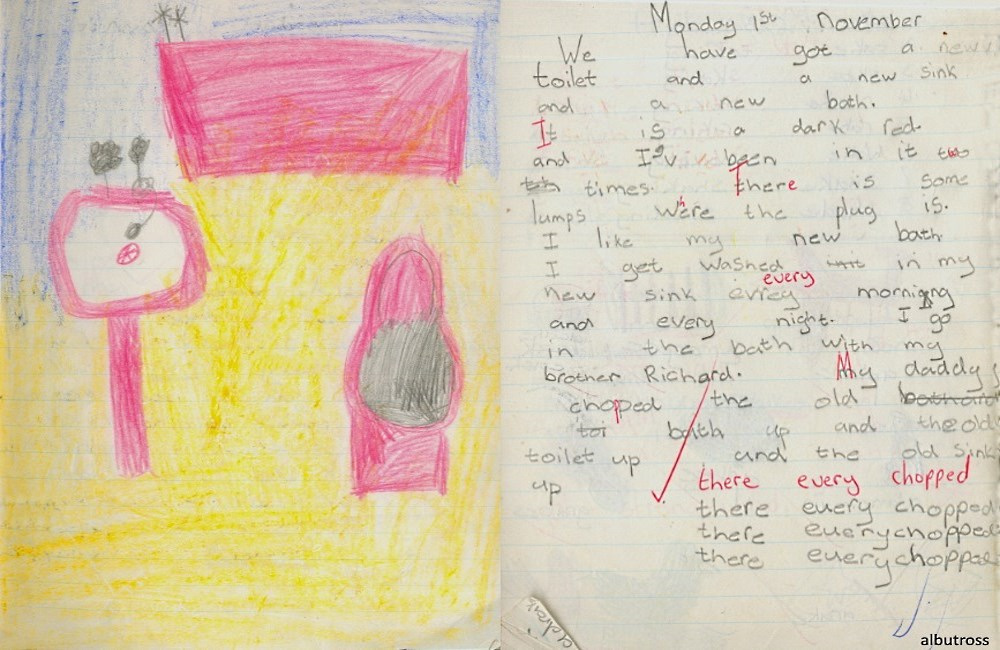 Monday 1st November
We have got a new
toilet and a new sink
and a new bath.
It is a dark red.
and I'v been in it two
times. There is some
lumps where the plug is.
I like my new bath
I get washed in my
every
new sink evrey morning
and every night. I go
in the bath with my
brother Richard. My daddy
chopped the old
toi bath up and the old
toilet up and the old sink
up
there every chopped
there every chopped
there every chopped
there every chopped
albutross